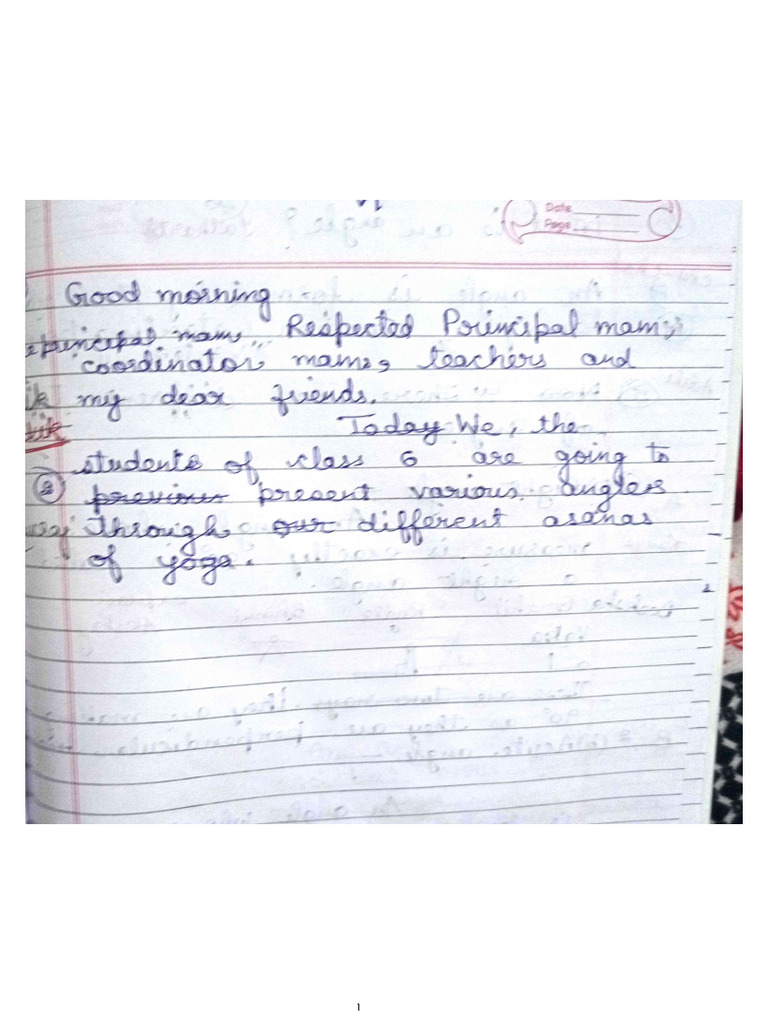 Date
Page
Good morning
principal mam Respected Principal mam,
coordinator mam, teachers and
my dear friends.
Today We, the
students of class 6 are going to
2 previous present various angles
through our different asanas
of yoga.
1